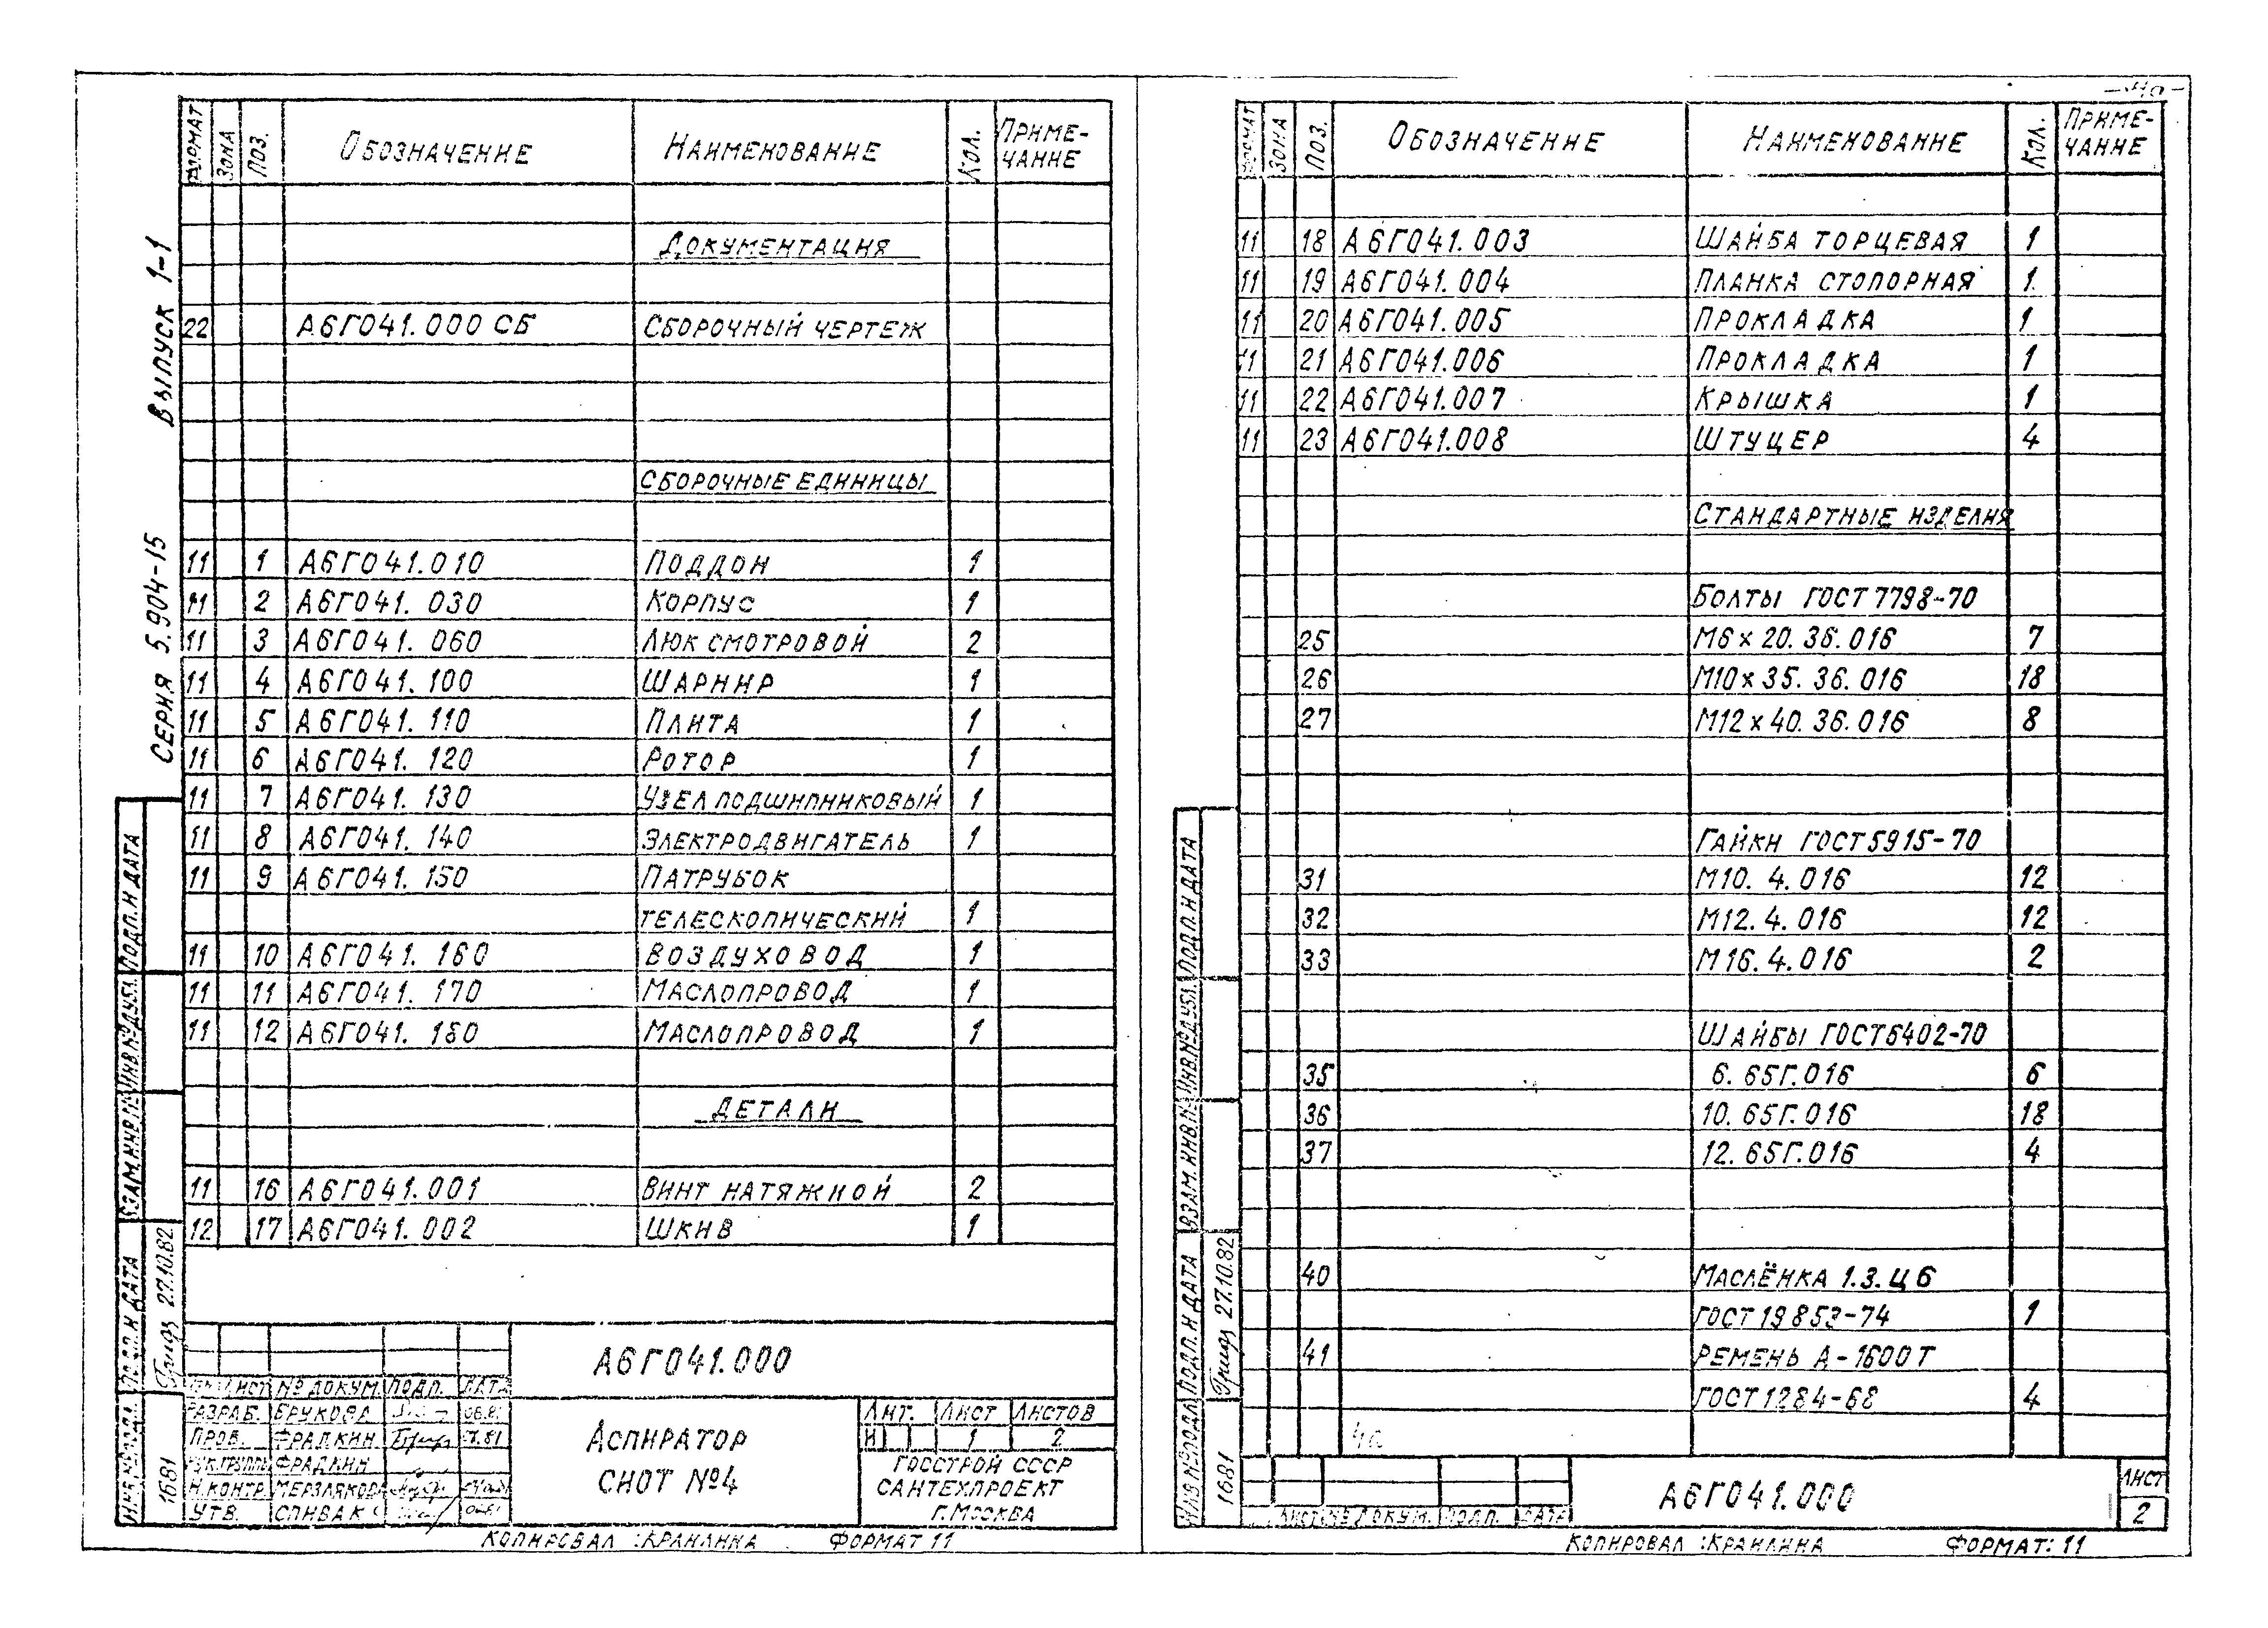 ФОРМАТ ЗОНА ПОЗ. ОБОЗНАЧЕНИЕ НАИМЕНОВАНИЕ КОЛ. ПРИМЕ-
ЧАНИЕ
ДОКУМЕНТАЦИЯ
22 А6Г041.000 СБ СБОРОЧНЫЙ ЧЕРТЕЖ
СБОРОЧНЫЕ ЕДИНИЦЫ
11 1 А6Г041.010 ПОДДОН 1
11 2 А6Г041.030 КОРПУС 1
11 3 А6Г041.060 ЛЮК СМОТРОВОЙ 2
11 4 А6Г041.100 ШАРНИР 1
11 5 А6Г041.110 ПЛИТА 1
11 6 А6Г041.120 РОТОР 1
11 7 А6Г041.130 УЗЕЛ ПОДШИПНИКОВЫЙ 1
11 8 А6Г041.140 ЭЛЕКТРОДВИГАТЕЛЬ 1
11 9 А6Г041.150 ПАТРУБОК
ТЕЛЕСКОПИЧЕСКИЙ 1
11 10 А6Г041.160 ВОЗДУХОВОД 1
11 11 А6Г041.170 МАСЛОПРОВОД 1
11 12 А6Г041.180 МАСЛОПРОВОД 1
ДЕТАЛИ
11 16 А6Г041.001 ВИНТ НАТЯЖНОЙ 2
12 17 А6Г041.002 ШКИВ 1
СЕРИЯ 5.904-15 ВЫПУСК 1-1
ПОДП. И ДАТА
ИНВ.№ДУБЛ.
ВЗАМ.ИНВ.№
ПОДП. И ДАТА 27.10.82
ИНВ.№ПОДЛ. 1681
А6Г041.000
ЛИСТ № ДОКУМ. ПОДП. ДАТА
РАЗРАБ. БРУКОВА 06.81
ПРОВ. ФРАДКИН 7.81
РУК.ГРУППЫ ФРАДКИН
Н.КОНТР. МЕРЗЛЯКОВА
УТВ. СПИВАК
АСПИРАТОР
СИОТ №4
ЛИТ. ЛИСТ ЛИСТОВ
И 1 2
ГОССТРОЙ СССР
САНТЕХПРОЕКТ
Г.МОСКВА
КОПИРОВАЛ :КРАИЛИНА ФОРМАТ 11
ФОРМАТ ЗОНА ПОЗ. ОБОЗНАЧЕНИЕ НАИМЕНОВАНИЕ КОЛ. ПРИМЕ-
ЧАНИЕ
11 18 А6Г041.003 ШАЙБА ТОРЦЕВАЯ 1
11 19 А6Г041.004 ПЛАНКА СТОПОРНАЯ 1
11 20 А6Г041.005 ПРОКЛАДКА 1
11 21 А6Г041.006 ПРОКЛАДКА 1
11 22 А6Г041.007 КРЫШКА 1
11 23 А6Г041.008 ШТУЦЕР 4
СТАНДАРТНЫЕ ИЗДЕЛИЯ
БОЛТЫ ГОСТ 7798-70
25 М6×20.36.016 7
26 М10×35.36.016 18
27 М12×40.36.016 8
ГАЙКИ ГОСТ 5915-70
31 М10.4.016 12
32 М12.4.016 12
33 М16.4.016 2
ШАЙБЫ ГОСТ 6402-70
35 6.65Г.016 6
36 10.65Г.016 18
37 12.65Г.016 4
40 МАСЛЁНКА 1.3.Ц6
ГОСТ 19853-74 1
41 РЕМЕНЬ А-1600Т
ГОСТ 1284-68 4
ПОДП. И ДАТА
ИНВ.№ДУБЛ.
ВЗАМ.ИНВ.№
ПОДП. И ДАТА 27.10.82
ИНВ.№ПОДЛ. 1681
ЛИСТ № ДОКУМ. ПОДП. ДАТА
А6Г041.000
ЛИСТ
2
КОПИРОВАЛ :КРАИЛИНА ФОРМАТ: 11